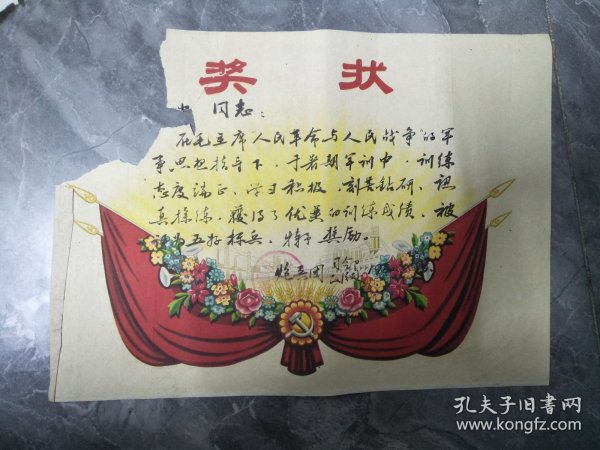 奖 状
同志：
在毛主席人民革命与人民战争的军
事思想指导下，于暑期军训中，训练
态度端正、学习积极、刻苦钻研、认
真操练，获得了优异的训练成绩，被
为五好标兵，特予奖励。
孔夫子旧书网
www.kongfz.com